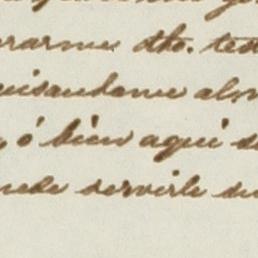 rarme dho. tes
uisandome alo
, ó bien aqui d
uede servirle su